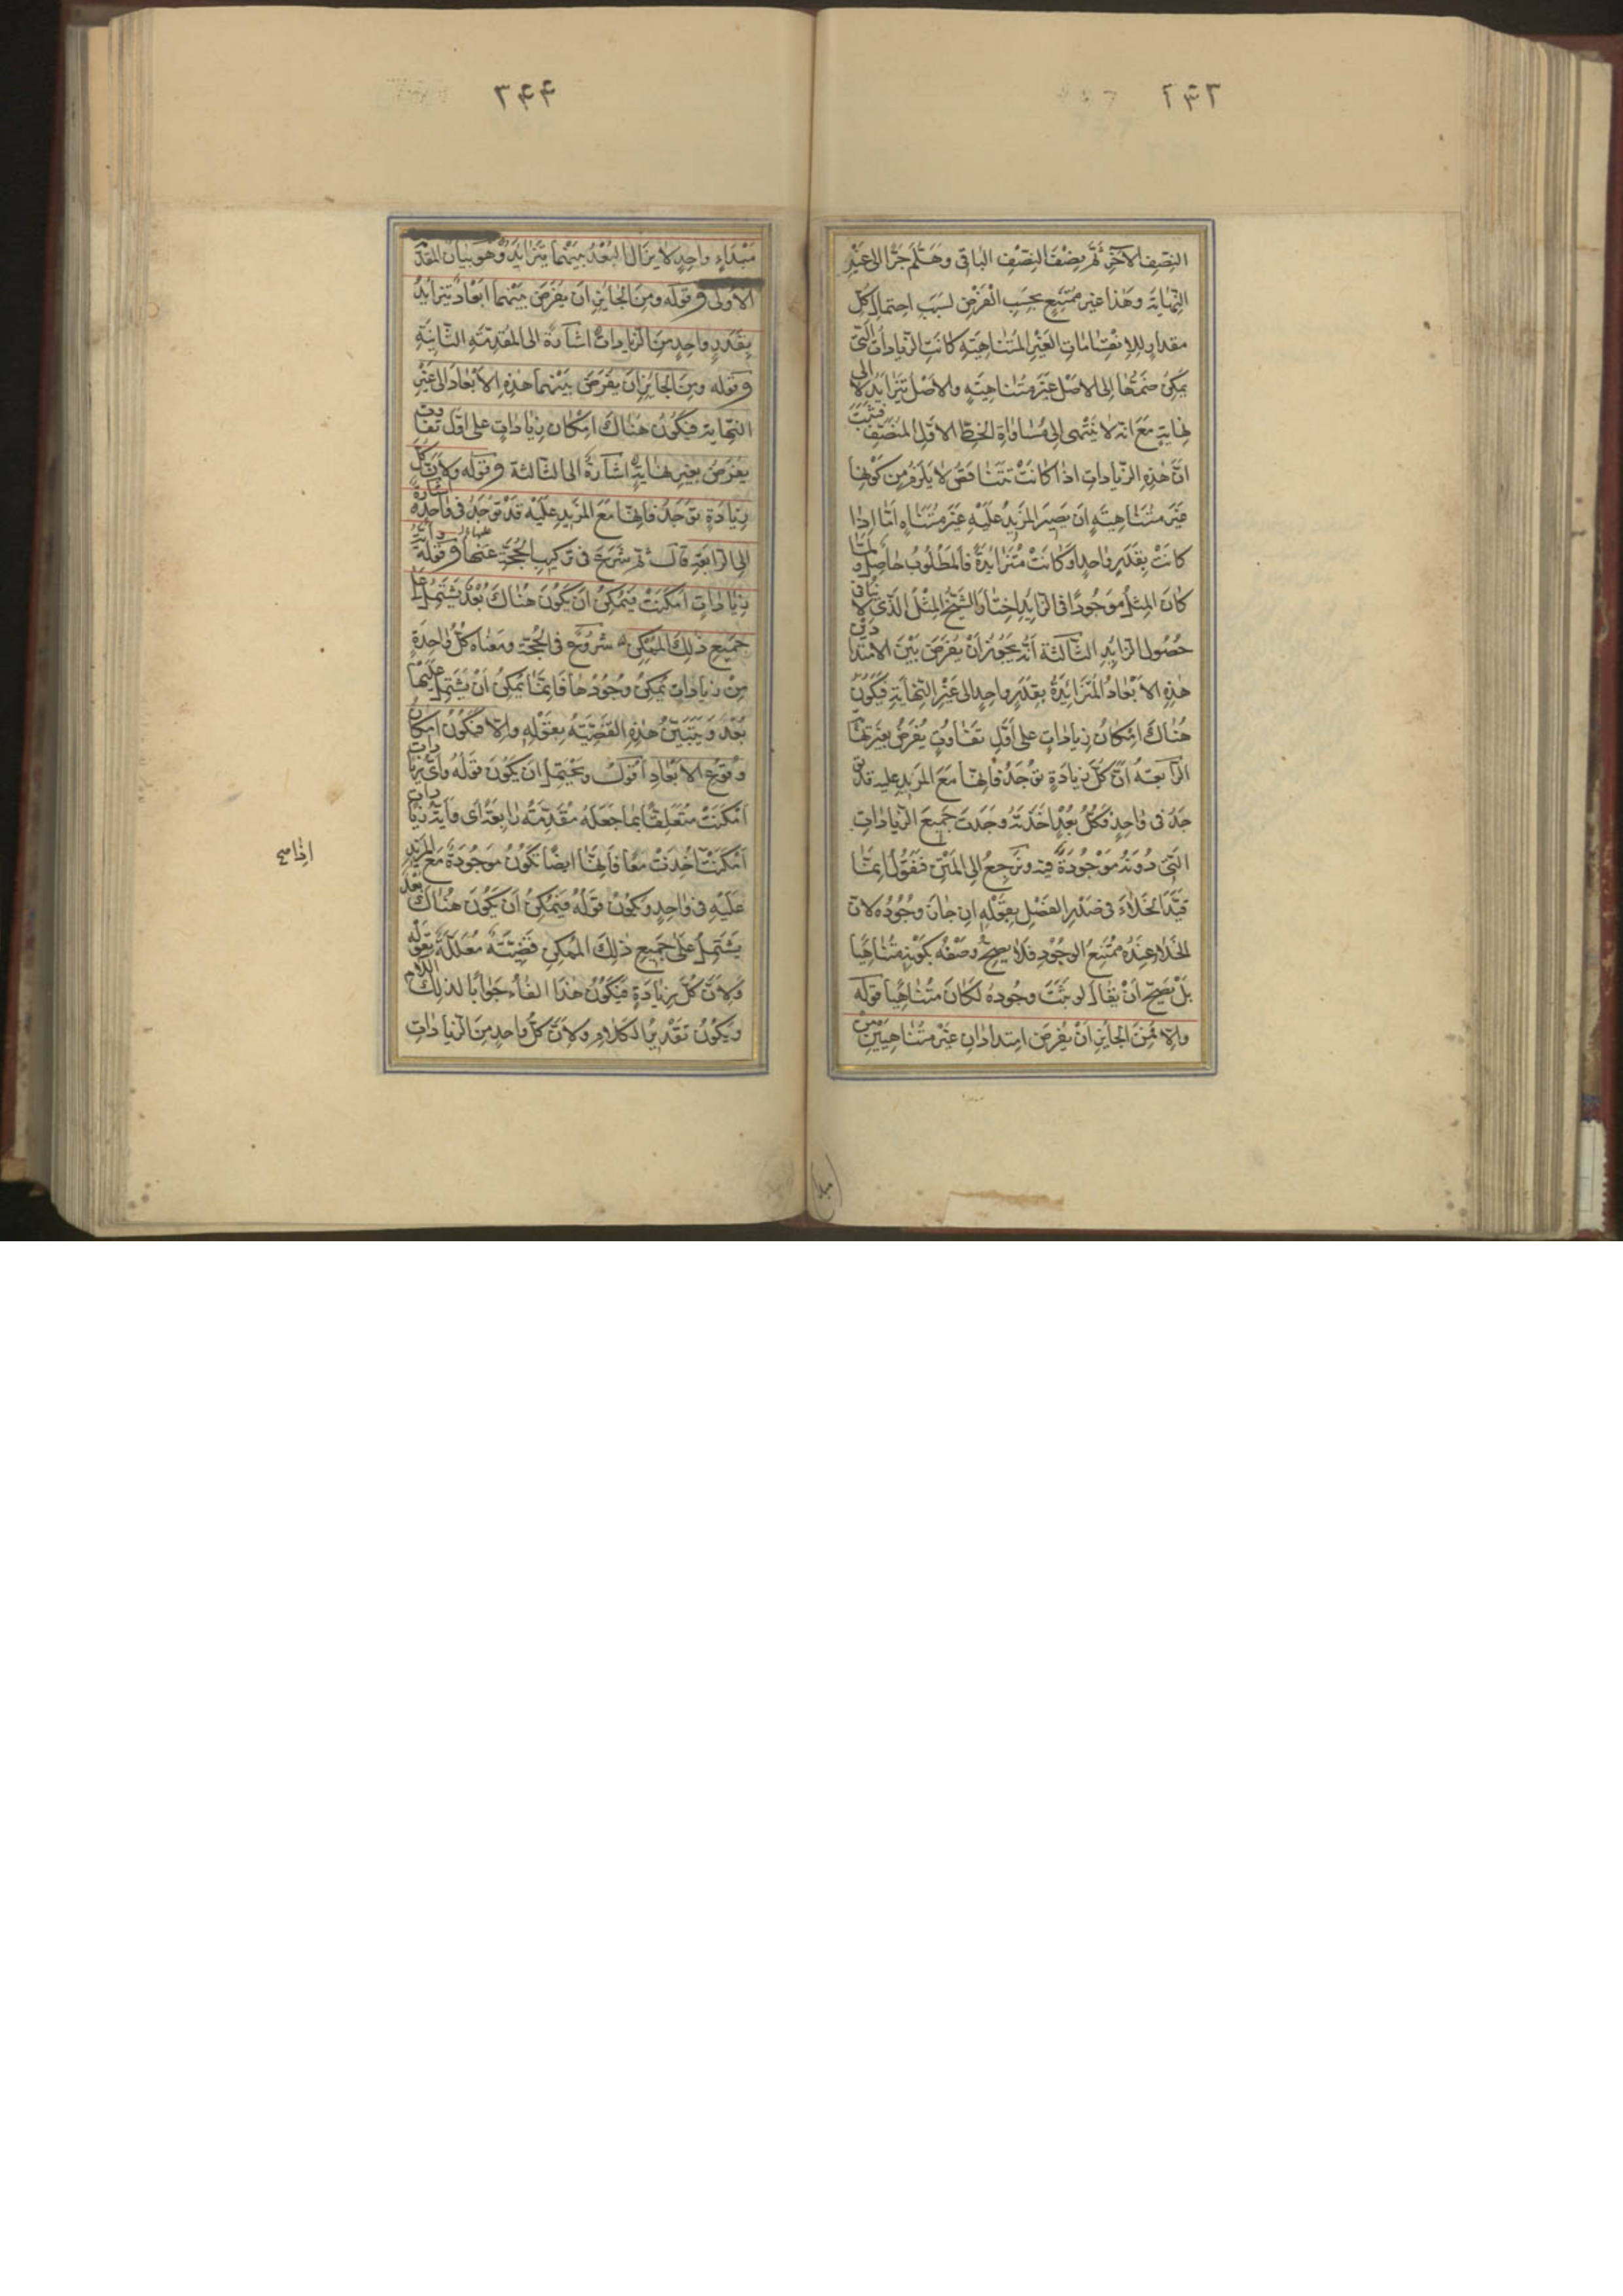 النصف الآخر ثم نصف النصف الباقى وهلم جرّا الى غير
النهاية وهذا غير ممتنع بحسب الفرض لسبب احتمال كل
مقدار للانقسامات الغير المتناهية كانت الزيادات التى
يمكن ضمها الى الاصل غير متناهية والاصل تتزايد لا الى
نهاية مع انه لا ينتهى الى مساواة الخط الاول المنصف فثبت
ان هذه الزيادات اذا كانت تتناقص لا يلزم من كونها
غير متناهية ان يصير المزيد عليه غير متناه امّا اذا
كانت بقدر واحد او كانت متزايدة فالمطلوب حاصل ولمّا
كان المثل موجودا فى الزايد اختار الشيخ المثل الذى لا ينافى
حصول الزايد الثالثة انه يجوز ان يفرض بين الامتدادين
هذه الابعاد المتزايدة بقدر واحد الى غير النهاية فيكون
هناك امكان زيادات على اول تفاوت يفرض بغير نهاية
الرابعة ان كل زيادة توجد فانها مع المزيد عليه قد تو
جد فى واحد فكل بعد اخذته وجدت جميع الزيادات
التى دونه موجودة فيه ونرجع الى المتن فنقول انما
قيّد الخلاء فى صدر الفصل بقوله ان جاز وجوده لان
الخلاء عنده ممتنع الوجود فلا يصح وصفه بكونه متناهيا
بل يصح ان يقال لو ثبت وجوده لكان متناهيا قوله
والا فمن الجايز ان يفرض امتدادان غير متناهيين من
مبداء واحد لا يزال البعد بينهما يتزايد وهو بيان المقد
الاولى وقوله ومن الجايز ان يفرض بينهما ابعاد تتزايد
بقدر واحد من الزيادات اشارة الى المقدمة الثانية
وقوله ومن الجايز ان يفرض بينهما هذه الابعاد الى غير
النهاية فيكون هناك امكان زيادات على اول تفاوت
يفرض بغير نهاية اشارة الى الثالثة وقوله ولان كل
زيادة توجد فانها مع المزيد عليه قد توجد فى واحدة اشارة
الى الرابعة قال ثم شرع فى تركيب الحجة عنها وقوله
زيادات امكنت فيمكن ان يكون هناك بعد يشتمل على
جميع ذلك الممكن شروع فى الحجة ومعناه كل واحدة
من زيادات يمكن وجودها فانما يمكن ان يشتمل عليها
بعد وتبين هذه القضية بقوله والا فيكون امكان
وقوع الابعاد اقول ويحتمل ان يكون قوله واى زيادات
امكنت متعلقا بما جعله مقدمة رابعة اى واية زيادات
امكنت اخذت معا فانها ايضا تكون موجودة مع المزيد
عليه فى واحد ويكون قوله فيمكن ان يكون هناك بعد
يشتمل على جميع ذلك الممكن قضية معللة بقوله
ولان كل زيادة فيكون هذا الفاء جوابا لذلك اللام
ويكون تقدير الكلام ولان كل واحد من الزيادات